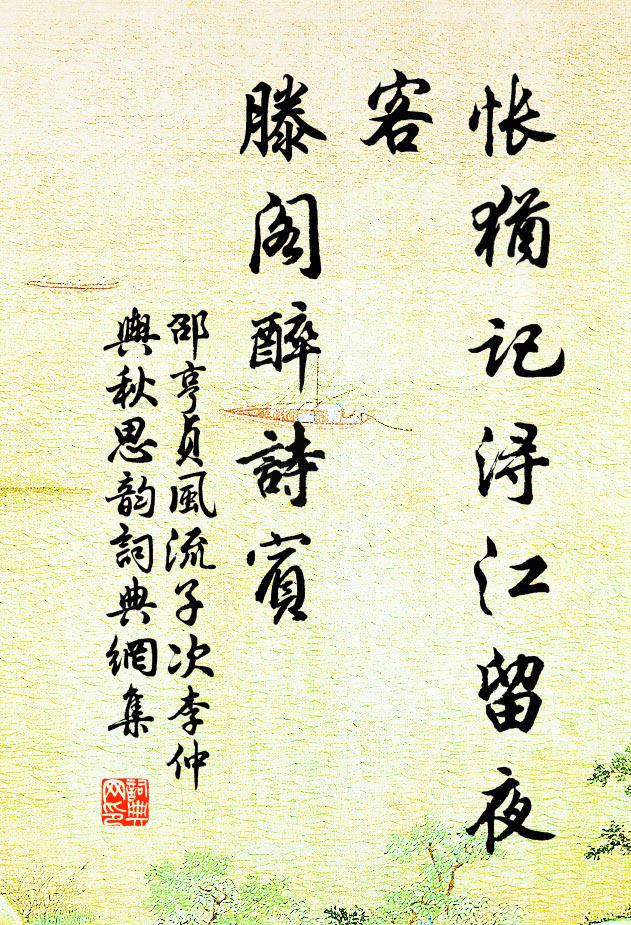 怅猶记浔江留夜
客
滕阁醉詩賓
邵亨貞風流子次李仲
興秋思韵詞典網集
詞典
网印